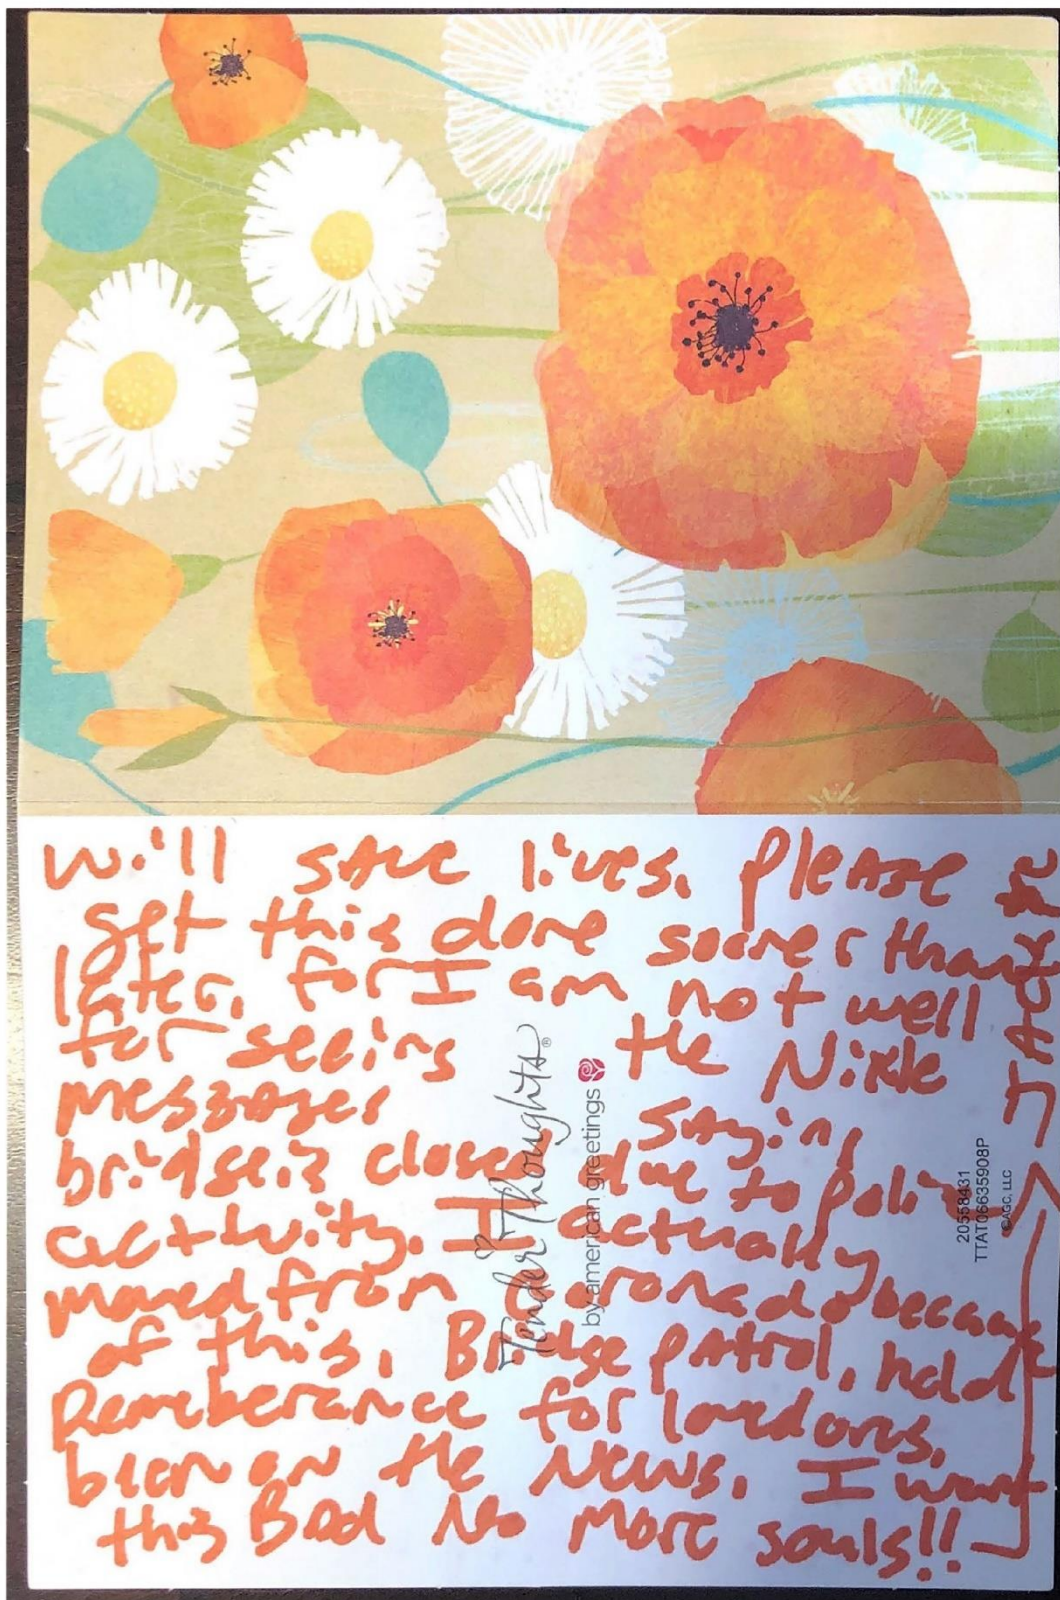 will save lives. Please
get this done sooner than
later, for I am not well
for seeing the Nixle
messages saying
bridge is closed due to police
activity. I actually
moved from Coronado because
of this. Bridge patrol, held
Rememberance for loved ones,
been on the News. I want
this Bad No More souls!!
Tender Thoughts®
by american greetings
20558431
TTAT06635908P
©AGC, LLC